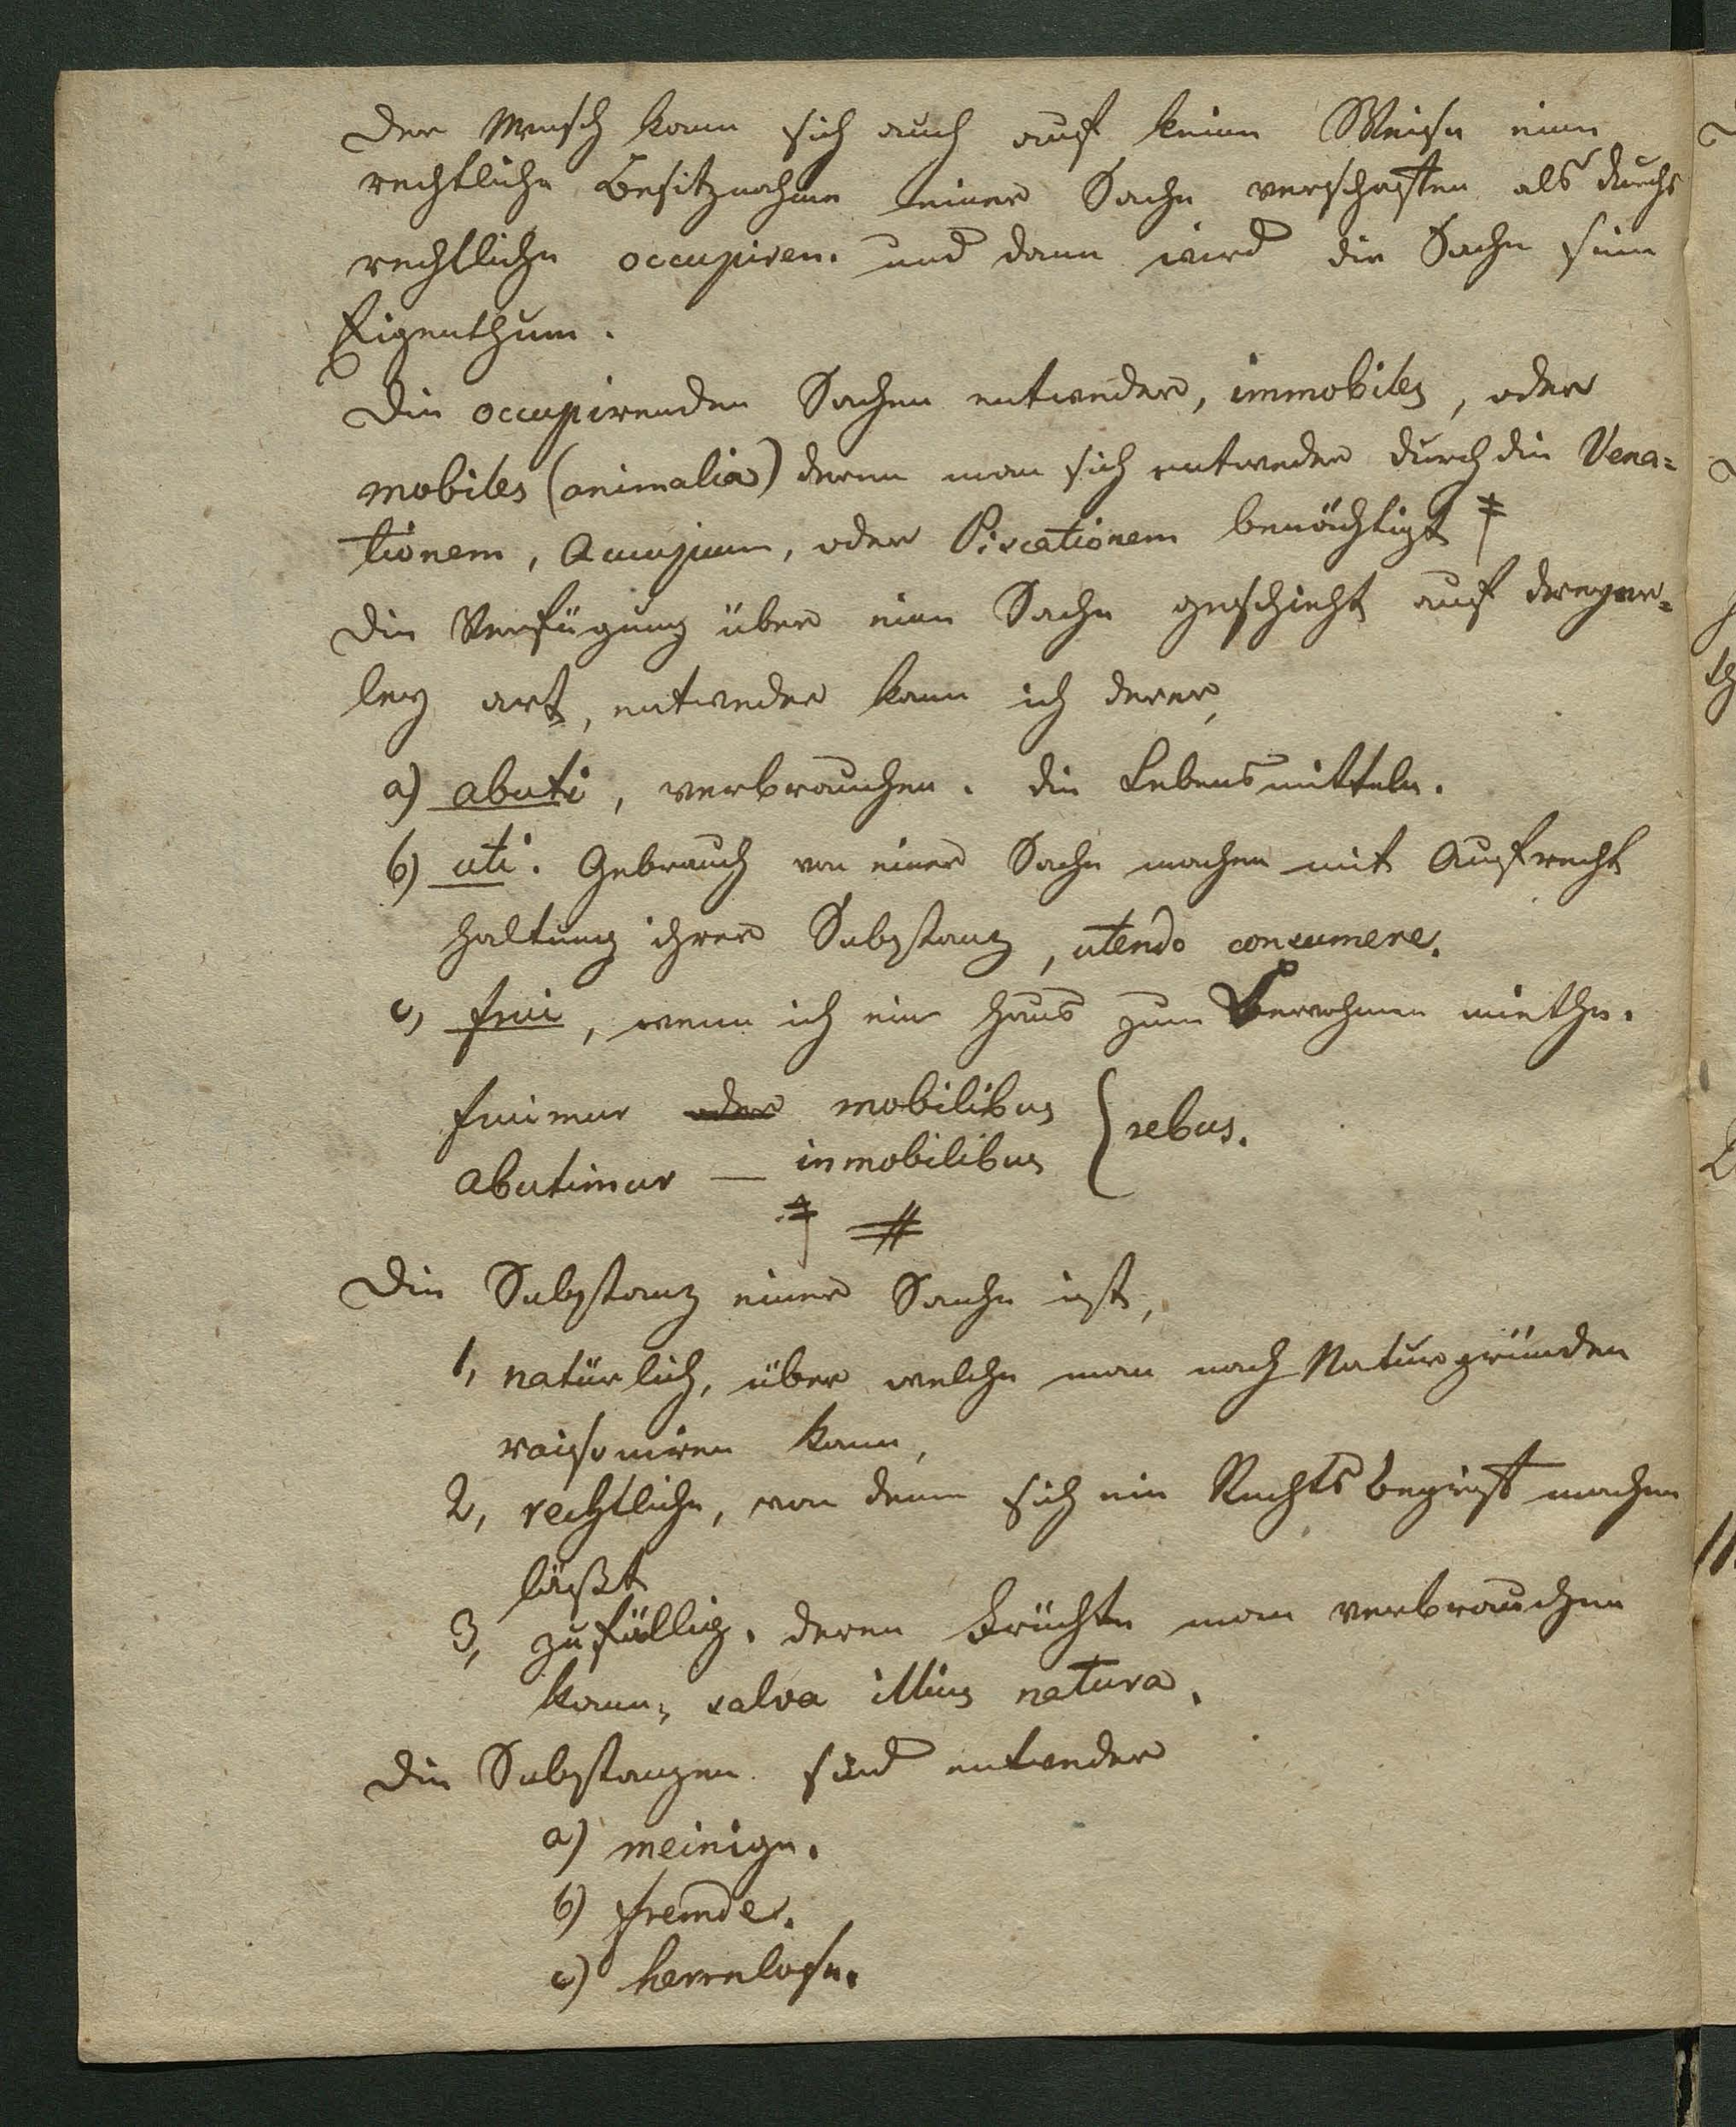 Der Mensch kann sich auch auf keine Weise eine
rechtliche Besitznahme einer Sache verschaffen als durchs
rechtliche occupiren. und dann wird die Sache sein
Eigenthum.
Die occupirenden Sachen entweder, immobiles, oder
mobiles (animalia) deren man sich entweder durch die Vena=
tionem, Aucupium, oder Piscationem bemächtigt ‡
Die Verfügung über eine Sache geschieht auf dreyer=
ley art, entweder kann ich derer,
a) abuti, verbrauchen. die Lebensmitteln.
b) uti. Gebrauch von einer Sache machen mit Aufrecht
haltung ihrer Substanz, utendo consumere.
c, frui, wenn ich ein Haus zum Bewohnen miethe.
fruimur oder mobilibus
abutimur — inmobilibus } rebus.
‡ #
Die Substanz einer Sache ist,
1, natürlich, über welche man nach Naturgründen
raisoniren kann,
2, rechtliche, von dem sich ein Rechtsbegriff machen
läßt
3, zufällig. deren Früchte man verbrauchen
kann, salva illius natura.
Die Substanzen sind entweder
a) meinige.
b) fremde.
c) herrnlose.